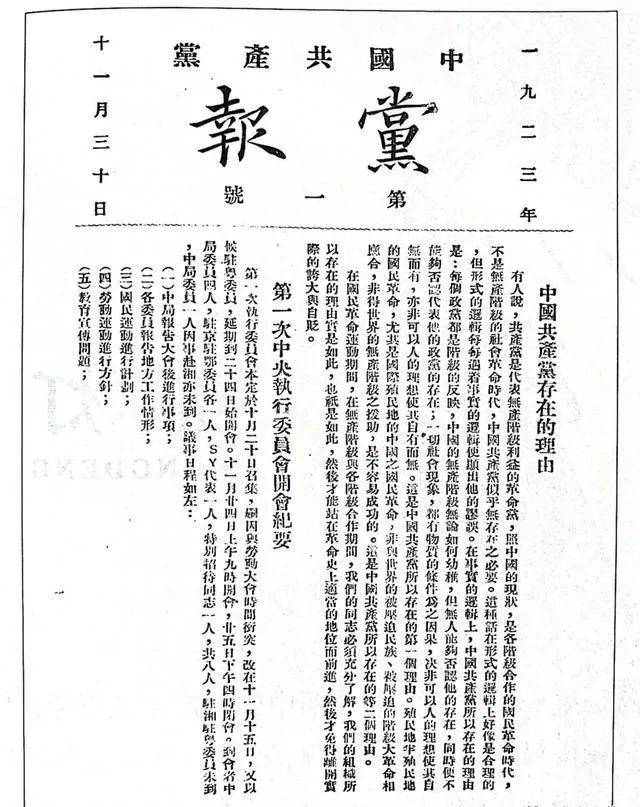 一九二三年
中國共產黨
黨報
第一號
十一月三十日
中國共產黨存在的理由
有人說，共產黨是代表無產階級利益的革命黨，照中國的現狀，是各階級合作的國民革命時代，
不是無產階級的社會革命時代，中國共產黨似乎無存在之必要。這種話在形式的邏輯上好像是合理的
，但形式的邏輯每每遇着事實的邏輯便顯出他的謬誤。在事實的邏輯上，中國共產黨所以存在的理由
是：每個政黨都是階級的反映，中國的無產階級無論如何幼稚，但無人能夠否認他的存在，同時便不
能夠否認代表他的政黨的存在；一切社會現象，都有物質的條件爲之因果，決非可以人的理想使其自
無而有，亦非可以人的理想使其自有而無。這是中國共產黨所以存在的第一個理由。殖民地半殖民地
的國民革命，尤其是國際殖民地的中國之國民革命，非與世界的被壓迫民族、被壓迫的階級大革命相
應合，非得世界的無產階級之援助，是不容易成功的。這是中國共產黨所以存在的第二個理由。
在國民革命運動期間，在無產階級與各階級合作期間，我們的同志必須充分了解，我們的組織所
以存在的理由實是如此，也祇是如此，然後才能站在革命史上適當的地位而前進，然後才免得離開實
際的誇大與自貶。
第一次中央執行委員會開會紀要
第一次執行委員會本定於十月二十日召集，嗣因與勞動大會時間衝突，改在十一月十五日，又以
候駐粵委員，延期到二十四日始開會。十一月廿四日上午九時開會，廿五日下午四時閉會。到會者中
局委員四人，駐京駐鄂委員各一人，SY代表一人，特別招待同志一人，共八人，駐湘駐粵委員未到
，中局委員一人因事赴湘亦未到。議事日程如左：
（一）中局報告大會後進行事項；
（二）各委員報告地方工作情形；
（三）國民運動進行計劃；
（四）勞動運動進行方針；
（五）教育宣傳問題；